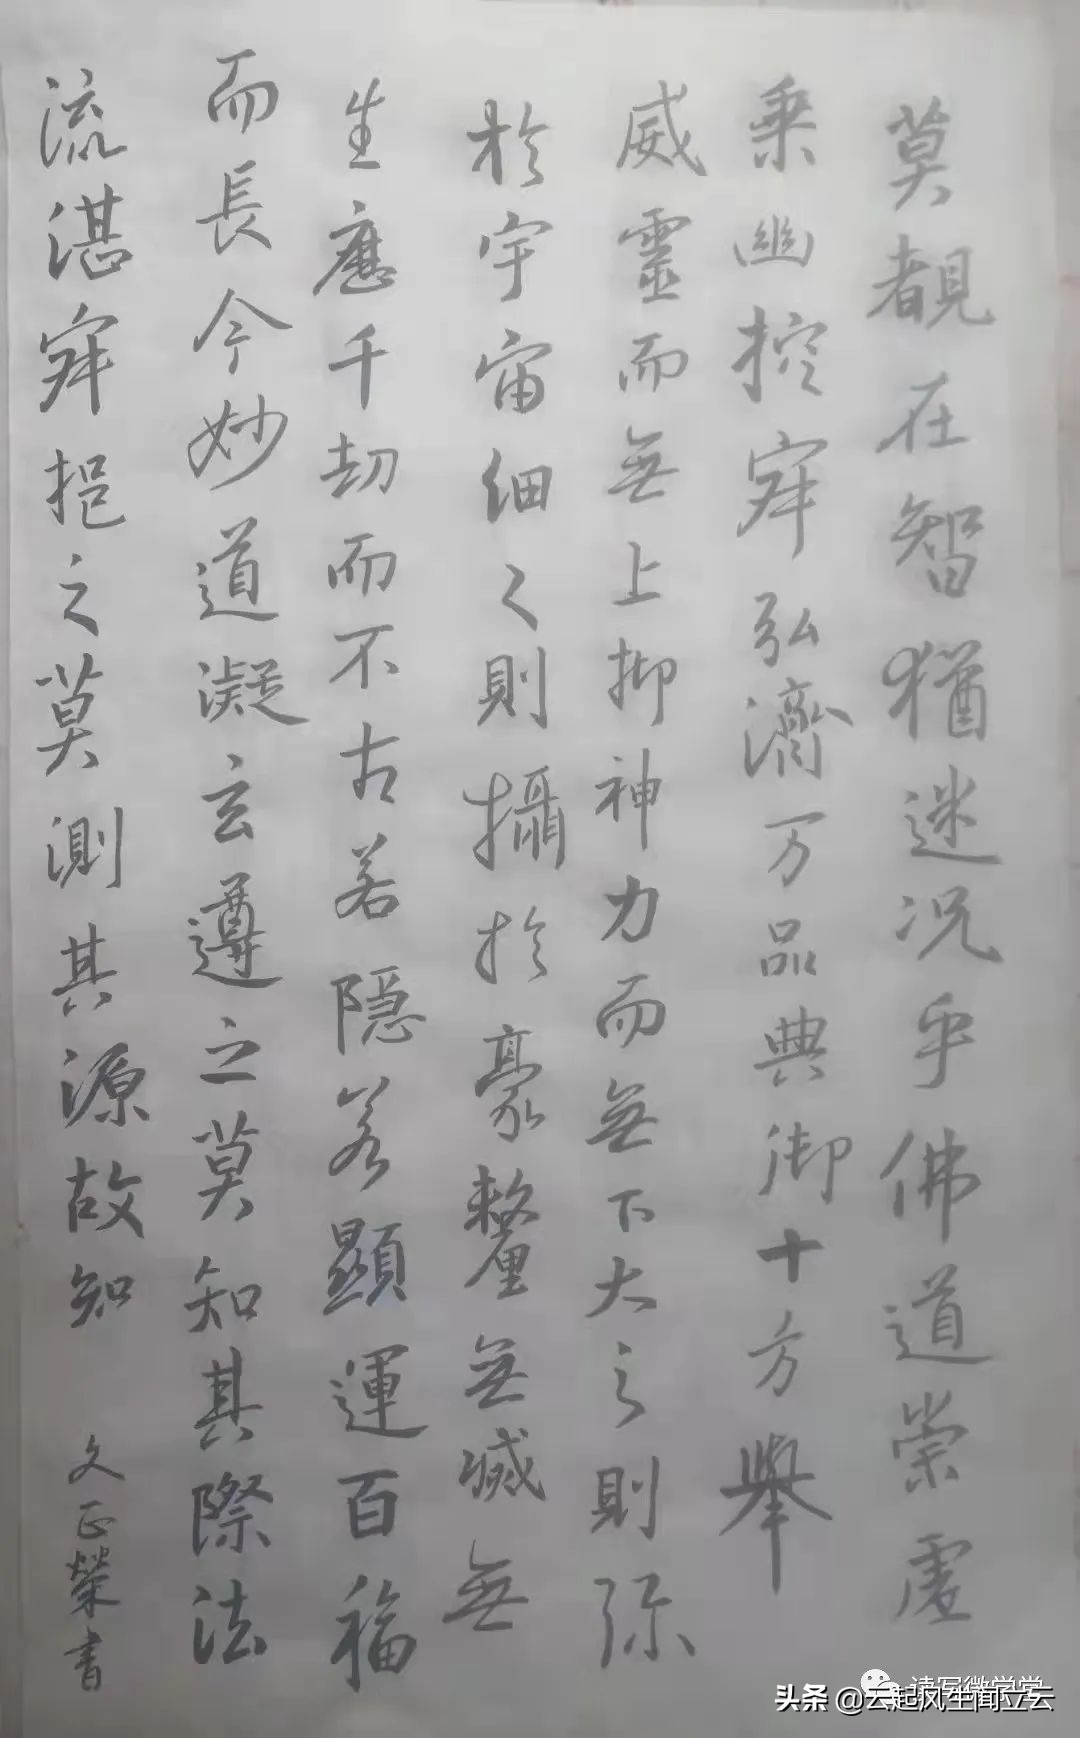 莫覩在智猶迷况乎佛道崇虚
乘幽控寂弘濟万品典御十方舉
威靈而無上抑神力而無下大之則弥
於宇宙細之則攝於豪釐無滅無
生應千劫而不古若隐若顯運百福
而長今妙道凝玄遵之莫知其際法
流湛寂挹之莫測其源故知
文正榮書
读写微学堂
头条 @云起风生闻立云